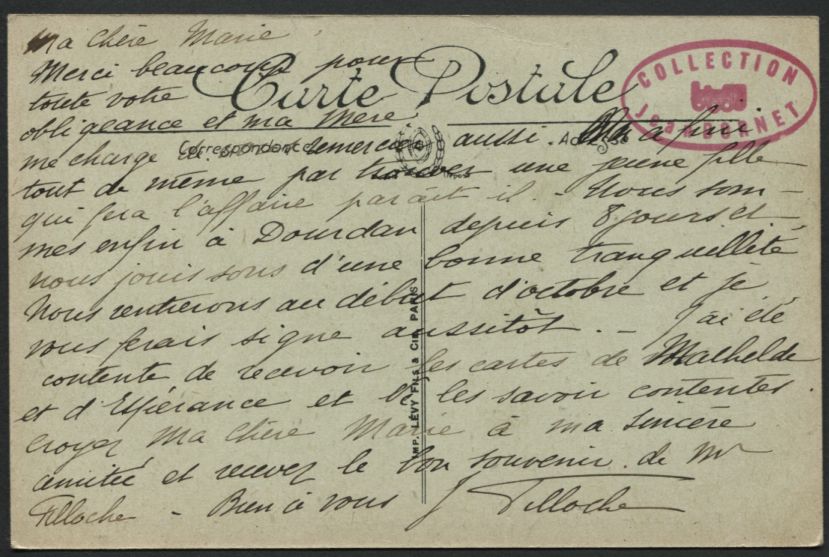 Ma Chère Marie,
Merci beaucoup pour
Carte Postale
COLLECTION
toute votre
obligeance et ma Mère
Correspondance
me charge remercier aussi. On a fini
tout de même par trouver une jeune fille
qui fera l'affaire parait il. - Nous som-
mes enfin à Dourdan depuis 8 jours et
nous jouissons d'une bonne tranquellité
Nous rentrerons au début d'octobre et je
vous ferais signe aussitôt. - J'ai été
contente de recevoir les cartes de Mathelde
et d'Espérance et de les savoir contentes.
Croyez Ma Chère Marie à ma sincère
amitié et recevez le bon souvenir de Mr
Filloche - Bien à vous J Filloche
IMP. LÉVY FILS & Cie PARIS